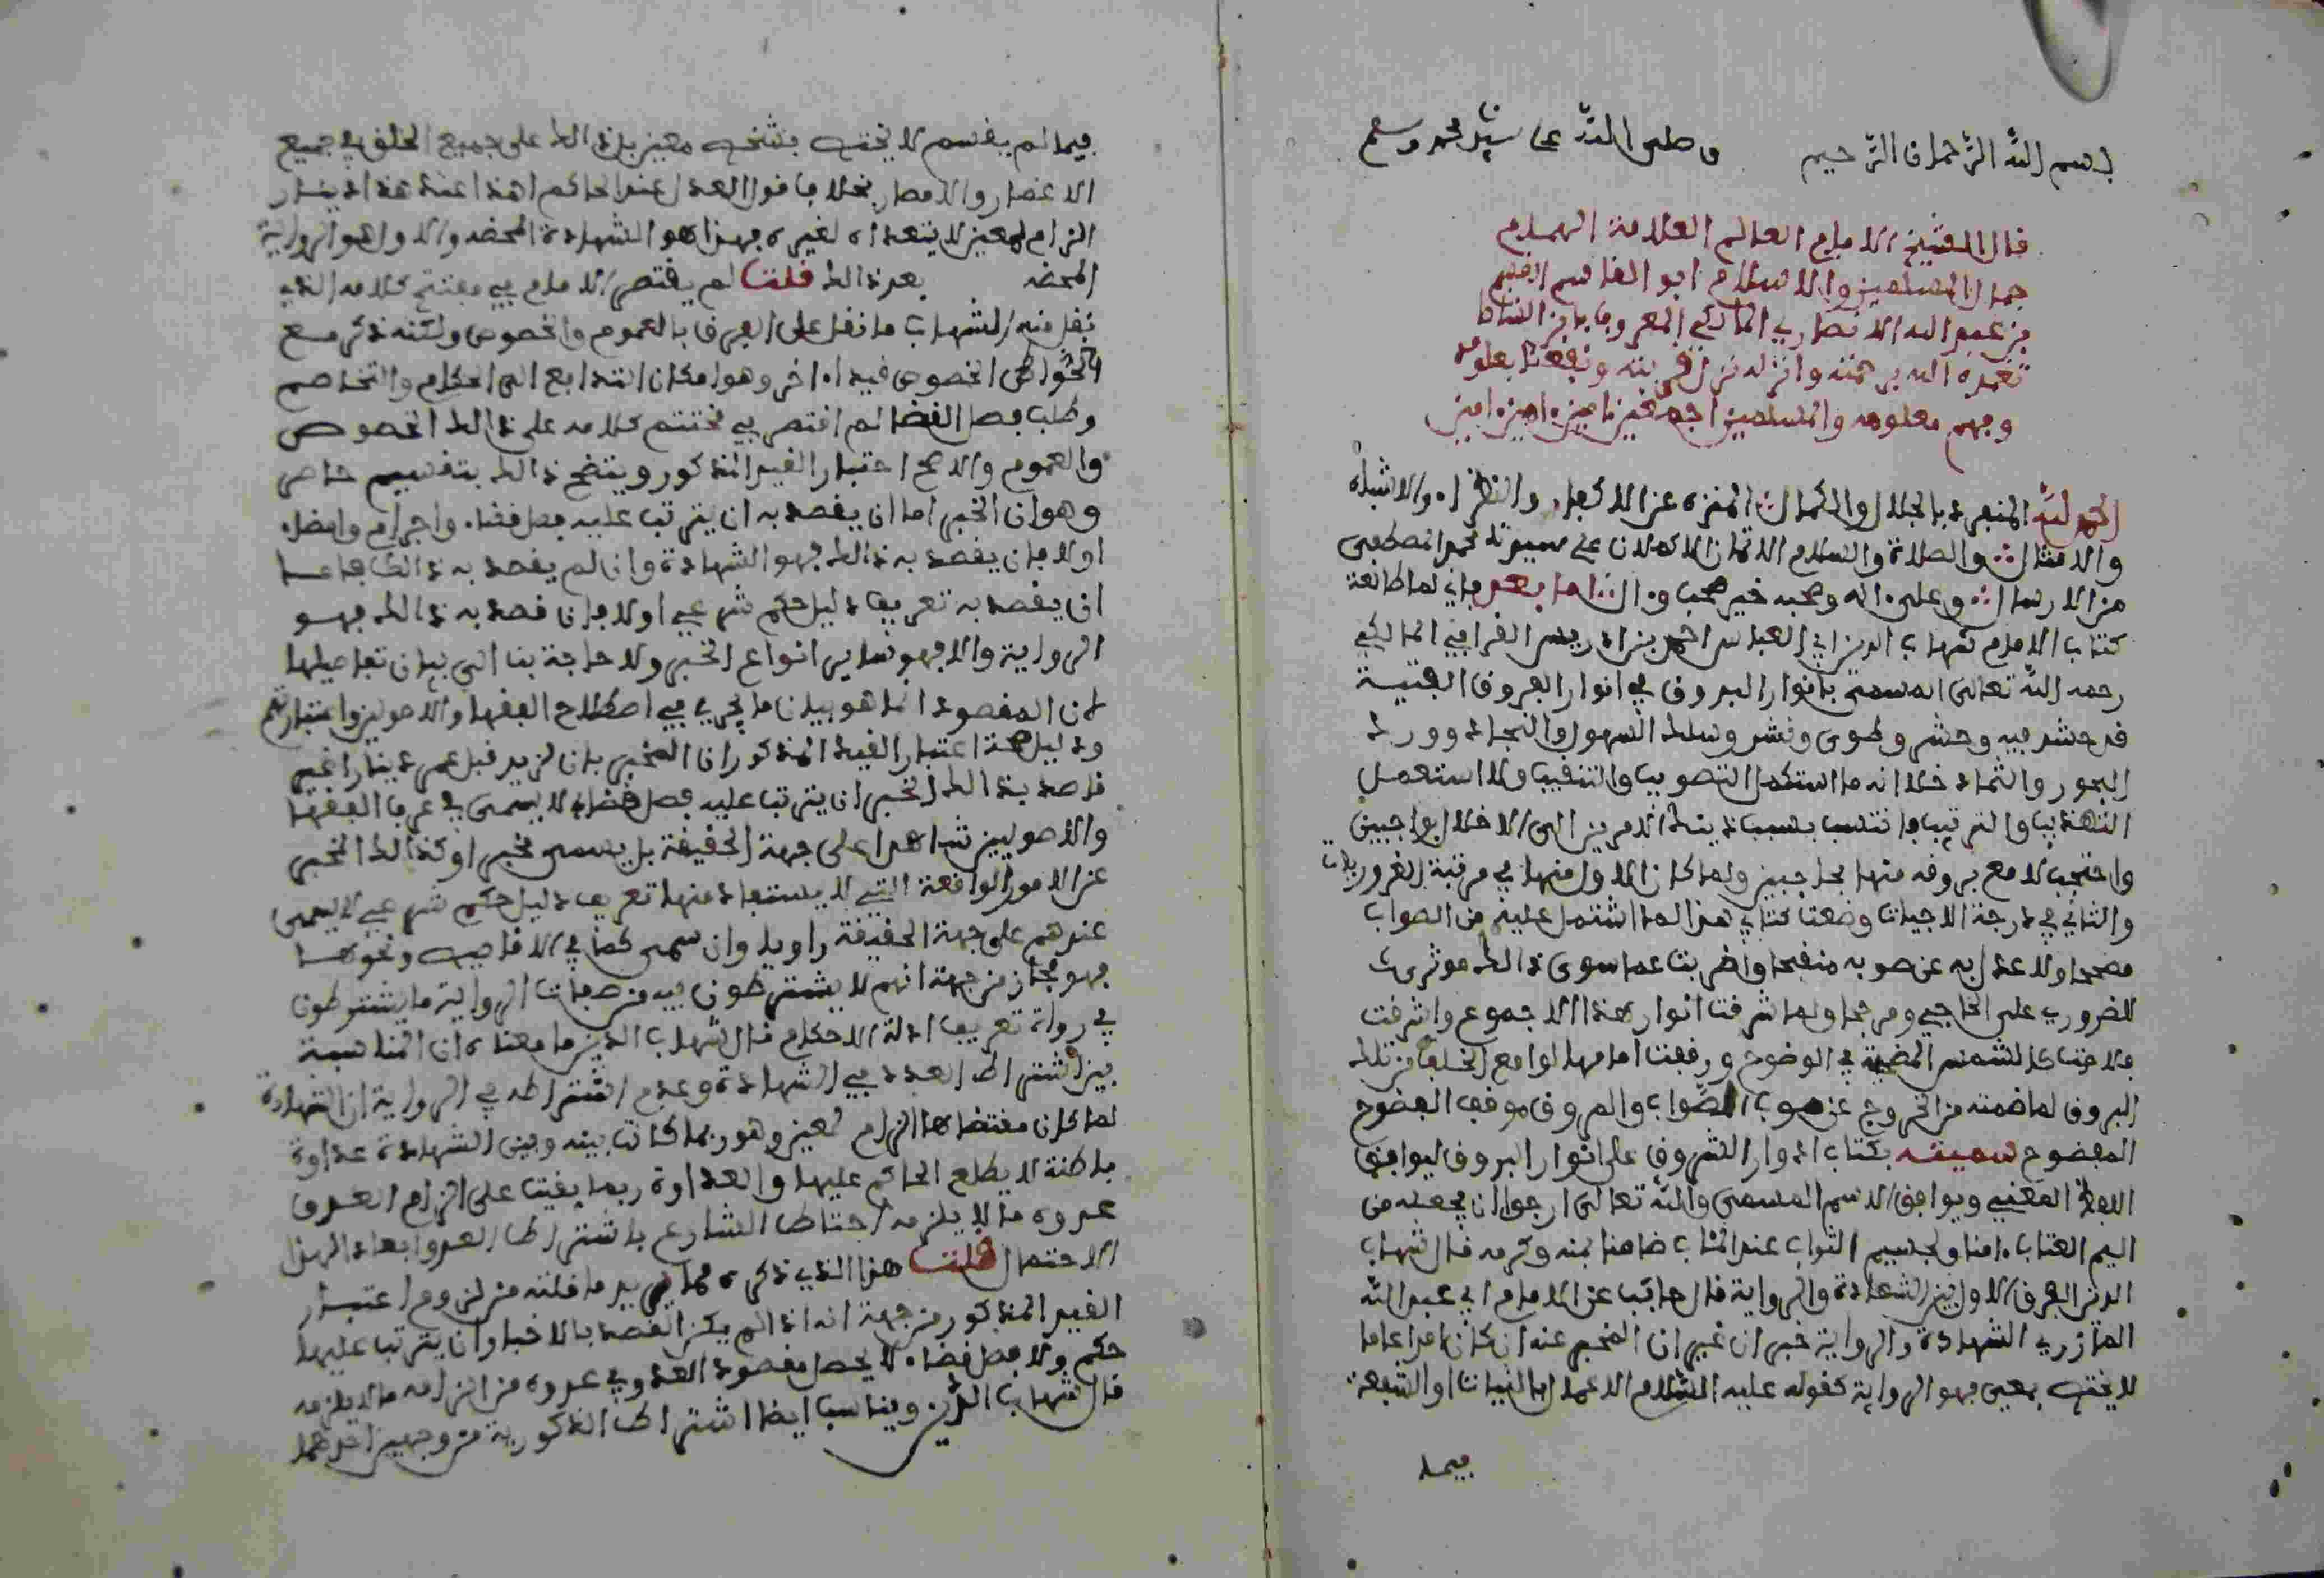 بسم الله الرحمان الرحيم وصلى الله على سيدنا محمد وسلم
قال الشيخ الامام العالم العلامة الهمام
جمال المسلمين والاسلام ابو القاسم القاسم
بن عبد الله الانصاري المالكي المعروف بابن الشاط
تغمده الله برحمته وانزله منزل قربته ونفعنا بعلومه
وفهم معلومه والمسلمين اجمعين ءامين ءامين ءامين
الحمد لله المنفرد بالجلال والكمال المنزه عن الاكفاء والنظراء والاشباه
والامثال والصلاة والسلام الاتمان الاكملان على سيدنا محمد المصطفى
من الارسال وعلى ءاله وصحبه خير صحب وءال اما بعد فاني لما طالعت
كتاب الامام شهاب الدين ابي العباس احمد بن ادريس القرافي المالكي
رحمه الله تعالى المسمى بانوار البروق في انوار الفروق الفيته
قد حشد فيه وحشر وطوى ونشر وسلك السهول والنجاد وورد
البحور والثماد خلا انه ما استكمل التصويب والتنقيب ولا استعمل
التهذيب والترتيب فانتسب بسبب ذينك الامرين الى الاخلال بواجبين
واحتجب لامع بروقه منهما بحاجبين ولما كان الاول منهما في مرقبة الضروريات
والثاني في درجة الاجيات وضعت كتابي هذا لما اشتمل عليه من الصواب
مصححا ولا عدل به عن صوبه منقحا واضربت عما سوى ذالك موثرا
للضروري على الحاجي ومرجحا ولما شرفت انوار هذا المجموع واشرقت
فلاحت كالشمس المضية في الوضوح ووقفت امامها لوامع الخلف من تلك
البروق لما ضمنته من الخروج عن صوب الصواب والمروق موقف المفضوح
المفضوح سميته بكتاب ادرار الشروق على انوار البروق ليوافق
اللفظ المعنى ويوافق الاسم المسمى والله تعالى ارجوا ان يجعله من
اليم العتاب ءامنا ولجسيم الثواب عند المئاب ضامنا بمنه وكرمه قال شهاب
الدين الفرق الاول بين الشهادة والرواية قال حاكيا عن الامام ابي عبد الله
المازري الشهادة والرواية خبران غير ان المخبر عنه ان كان امرا عاما
لا يختص بمعين فهو الرواية كقوله عليه السلام الاعمال بالنيات او الشفعة
فيما
فيما لم يقسم لا يختص بشخص معين بل ذالك على جميع الخلق في جميع
الاعصار والامصار بخلاف قول العدل عند الحاكم لهذا عند هذا دينار
الزام لمعين لا يتعداه لغيره فهذا هو الشهادة المحضة والاول هو الرواية
المحضة بعد ذالك قلت لم يقتصر الامام في مفتتح كلامه الذي
نقل منه الشهاب ما نقل على الفرق بالعموم والخصوص ولكنه ذكر مع
الخصوص قيدا ءاخر وهو امكان الترافع الى الحكام والتخاصم
وطلب فصل القضا لم اقتصر في مختتم كلامه على ذالك الخصوص
والعموم والاصح اعتبار القيد المذكور ويتضح ذالك بتقسيم حاصر
وهو ان الخبر اما ان يقصد به ان يترتب عليه فصل قضاء وابرام وامضاء
اولا فان يقصد به ذالك فهو الشهادة وان لم يقصد به ذالك فاما
ان يقصد به تعريف دليل حكم شرعي اولا فان قصد به ذالك فهو
الرواية والا فهو سائر انواع الخبر ولا حاجة بنا الى بيان تفاصيلها
لان المقصود انما هو بيان ما يجري في اصطلاح الفقها والاصوليين واعتبارهم
ودليل صحة اعتبار القيد المذكور ان المخبر بان لزيد قبل عمر دينارا غير
قاصد بذالك الخبر ان يترتب عليه فصل قضاء لا يسمى في عرف الفقها
والاصوليين شاهدا على جهة الحقيقة بل يسمى مخبرا وكذالك المخبر
عن الامور الواقعة التي لا يستفاد منها تعريف دليل حكم شرعي لا يسمى
عندهم على جهة الحقيقة راويا وان سمى كما في الاقاصيص ونحوها
فهو مجاز من جهة انهم لا يشترطون فيه من صفات الرواية ما يشترطون
في رواة تعريف ادلة الاحكام قال شهاب الدين ما معناه ان المناسبة
بين اشتراط العدد في الشهادة وعدم اشتراطه في الرواية ان الشهادة
لما كان مقتضاها الزام لمعين وهو ربما كانت بينه وبين الشهادة عداوة
باطنة لا يطلع الحاكم عليها والعداوة ربما بعثت على الزام العدو
عدوه ما لا يلزمه احتاط الشارع باشتراط العدد ابعادا لهذا
الاحتمال قلت هذا الذي ذكره مما يريد ما قلته من لزوم اعتبار
القيد المذكور من جهة انه اذا لم يكن القصد بالاخبار ان يترتب عليها
حكم ولا فصل قضاء لا يحصل مقصود العدو في عدوه من الزامه ما لا يلزمه
قال شهاب الدين ويناسب ايضا اشتراط الذكورية من وجهين احدهما